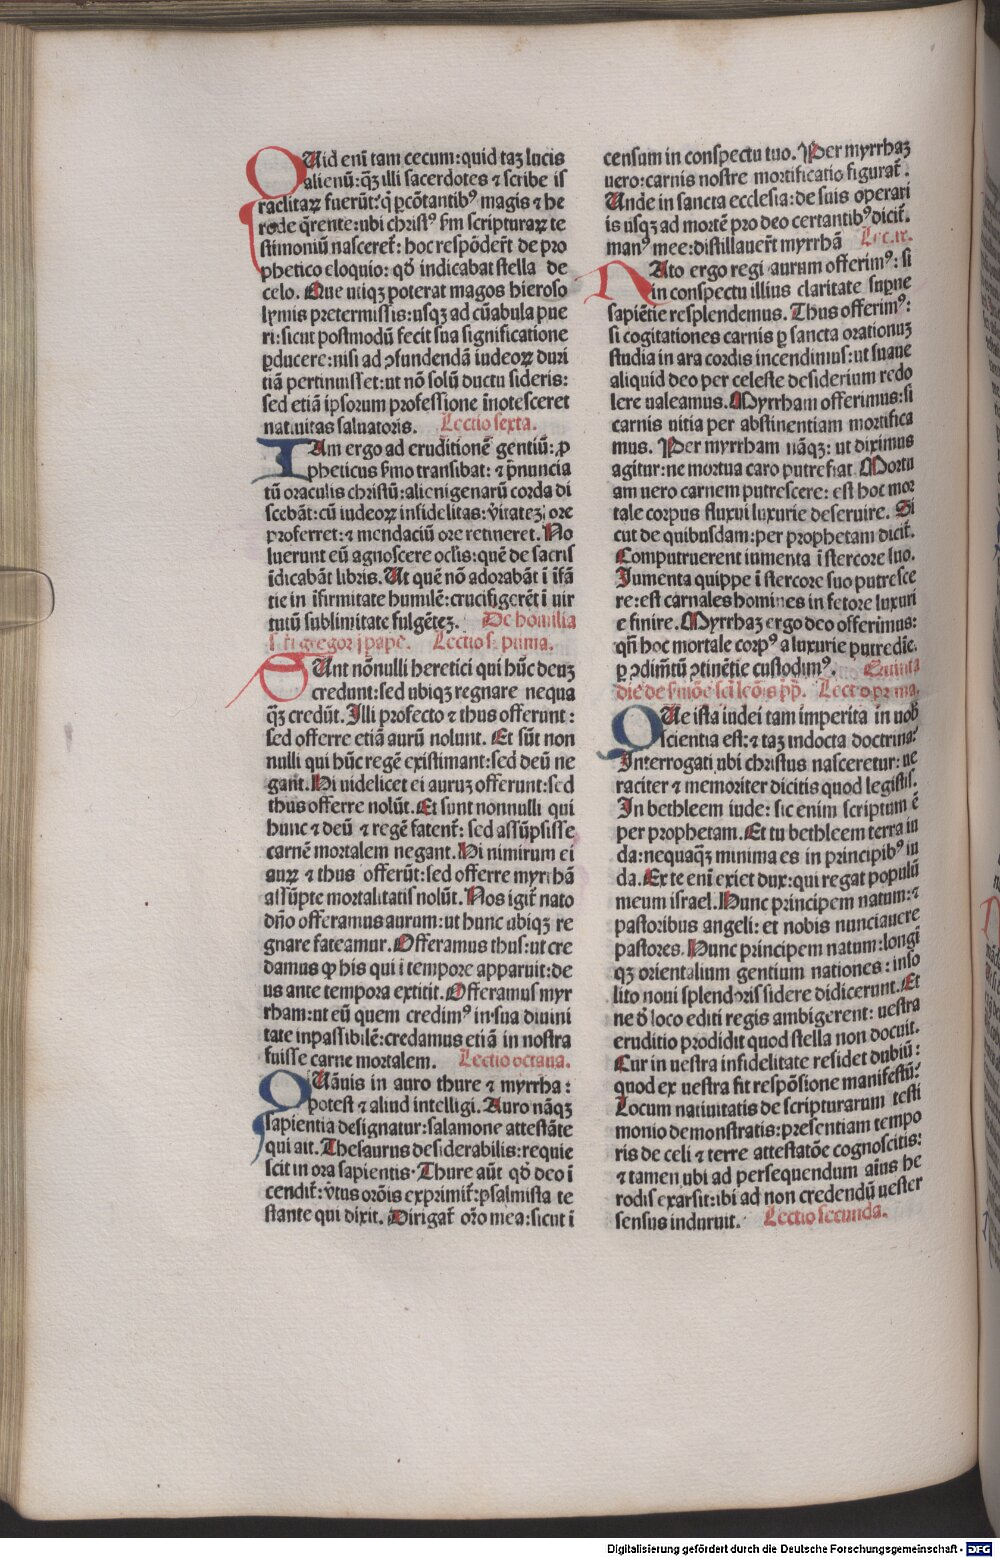 QUid enī tam cecum:quid taꝫ lucis
alienū:qꝫ illi sacerdotes ⁊ scribe is
raelitaꝝ fuerūt? q̇ ꝑcōtantibꝰ magis ⁊ he
rode q̄rente:ubi christꝰ ẜm scripturaꝝ te
stimoniū nasceret̄: hoc respōdeſt de pro
phetico eloquio: qđ indicabat stella de
celo. Que utiqꝫ poterat magos hieroso
lymis pretermissis:usqꝫ ad cūabula pue
ri:sicut postmodū fecit sua significatione
ꝓducere:nisi ad ꝯfundendā iudeoꝝ duri
tiā pertinuisset:ut nō solū ductu sideris:
sed etiā ipsorum professione īnotesceret
natiuitas saluatoris. Lectio sexta.
IAm ergo ad eruditionē gentiū: ꝓ
pheticus ẜmo transibat: ⁊ p̄nuncia
tū oraculis christū:alienigenarū corda di
scebāt:cū iudeoꝝ infidelitas: v̄itateꝫ ore
proferret:⁊ mendaciū ore retineret. No
luerunt eū agnoscere oclis:quē de sacris
īdicabāt libris. Ut quē nō adorabāt ī īfā
tie in īfirmitate humilē:crucifigerēt ī uir
tutū sublimitate fulgēteꝫ. De homilia
s̄cti gregorij pape. Lectio s. prima.
SUnt nōnulli heretici qui hūc deuꝫ
credunt:sed ubiqꝫ regnare nequa
qꝫ credūt. Illi profecto ⁊ thus offerunt:
sed offerre etiā aurū nolunt. Et sūt non
nulli qui hūc regē existimant:sed deū ne
gant. Hi uidelicet ei auruꝫ offerunt:sed
thus offerre nolūt. Et sunt nonnulli qui
hunc ⁊ deū ⁊ regē fatent̄: sed assūpsisse
carnē mortalem negant. Hi nimirum ei
auꝝ ⁊ thus offerūt:sed offerre myrrhā
assūpte mortalitatis nolūt. Nos igit̄ nato
dn̄o offeramus aurum:ut hunc ubiqꝫ re
gnare fateamur. Offeramus thus:ut cre
damus ꝙ his qui ī tempore apparuit:de
us ante tempora extitit. Offeramus myr
rham:ut eū quem credimꝰ in sua diuini
tate inpassibilē:credamus etiā in nostra
fuisse carne mortalem. Lectio octaua.
QUāuis in auro thure ⁊ myrrha:
potest ⁊ aliud intelligi. Auro nāqꝫ
sapientia designatur:salamone attestāte
qui ait. Thesaurus desiderabilis:requie
scit in ora sapientis. Thure aūt qđ deo ī
cendit̄: v̄tus orōis exprimit̄:psalmista te
stante qui dixit. Dirigat̄ orō mea:sicut ī
censum in conspectu tuo. Per myrrhaꝫ
uero:carnis nostre mortificatio figurat̄.
Unde in sancta ecclesia:de suis operari
is usqꝫ ad mortē pro deo certantibꝰ dicit̄.
manꝰ mee:distillauer̄t myrrhā Lec.ix.
NAto ergo regi aurum offerimꝰ: si
in conspectu illius claritate suꝑne
sapiētie resplendemus. Thus offerimꝰ:
si cogitationes carnis ꝑ sancta orationuꝫ
studia in ara cordis incendimus:ut suaue
aliquid deo per celeste desiderium redo
lere ualeamus. Myrrham offerimus:si
carnis uitia per abstinentiam mortifica
mus. Per myrrham nāqꝫ: ut diximus
agitur:ne mortua caro putrefiat. Mortu
am uero carnem putrescere: est hoc mor
tale corpus fluxui luxurie deseruire. Si
cut de quibusdam:per prophetam dicit̄.
Computruerunt iumenta ī stercore suo.
Iumenta quippe ī stercore suo putresce
re:est carnales homines in fetore luxuri
e finire. Myrrhaꝫ ergo deo offerimus:
qn̄ hoc mortale corpꝰ a luxurie putredīe.
ꝑ ꝯdimētū ꝯtinētie custodimꝰ. Quinta
die de ẜmōe scī leōis pp̄. Lectio prima.
QUe ista iudei tam imperita in uob̄
scientia est:⁊ taꝫ indocta doctrina?
Interrogati ubi christus nasceretur: ue
raciter ⁊ memoriter dicitis quod legistis.
In bethleem iude: sic enim scriptum ē
per prophetam. Et tu bethleem terra iu
da:nequaqꝫ minima es in principibꝰ iu
da. Ex te enī exiet dux:qui regat populū
meum israel. Hunc principem natum:⁊
pastoribus angeli: et nobis nunciauere
pastores. Hunc principem natum:longī
qꝫ orientalium gentium nationes: inso
lito noui splendoris sidere didicerunt. Et
ne đ loco editi regis ambigerent: uestra
eruditio prodidit quod stella non docuit.
Cur in uestra infidelitate residet dubiū:
quod ex uestra fit respōsione manifestū?
Locum natiuitatis de scripturarum testi
monio demonstratis:presentiam tempo
ris de celi ⁊ terre attestatōe cognoscitis:
⁊ tamen ubi ad persequendum aīus he
rodis exarsit:ibi ad non credendū uester
sensus induruit. Lectio secunda.
Digitalisierung gefördert durch die Deutsche Forschungsgemeinschaft - DFG